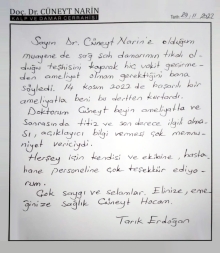 Doç. Dr. CÜNEYT NARİN
KALP VE DAMAR CERRAHİSİ
Tarih: 29.11.2022
Sayın Dr. Cüneyt Narin'e olduğum
muayenede sağ şah damarımın tıkalı ol-
duğu teşhisini koyarak hiç vakit geçirme-
den ameliyat olmam gerektiğini bana
söyledi. 14 Kasım 2022 de başarılı bir
ameliyatla beni bu dertten kurtardı.
Doktorum Cüneyt beyin ameliyatta ve
sonrasında titiz ve son derece ilgili olma-
sı, açıklayıcı bilgi vermesi çok memnu-
niyet vericiydi.
Herşey için kendisi ve ekibine, hasta-
hane personeline çok teşekkür ediyo-
rum.
Çok saygı ve selamlar. Elinize, eme-
ğinize sağlık Cüneyt Hocam.
Tarık Erdoğan